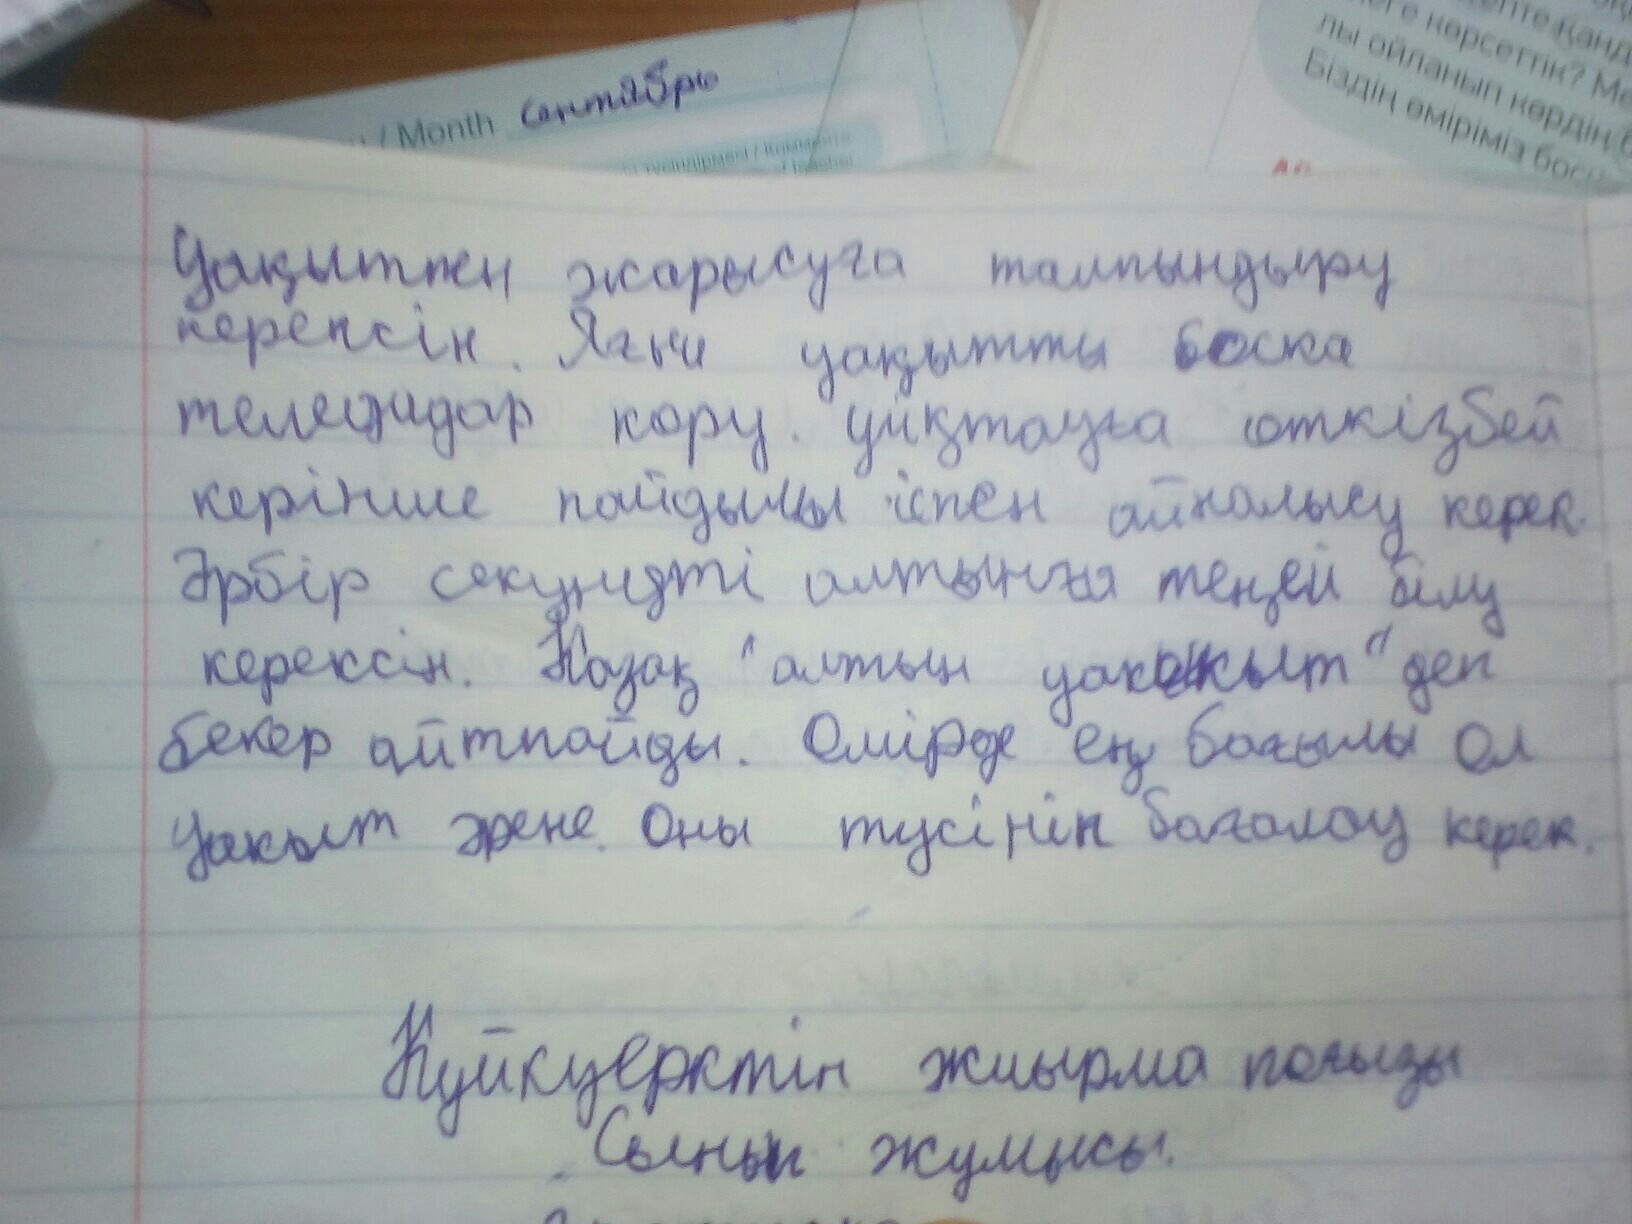 / Month сентябрь
көрсеттік? Ме
лы ойланып көрдің б
Біздің өміріміз босқ
Уақытпен жарысуға талпындыру
керексін. Яғни уақытты боска
теледидар кору. ұйқтауға откізбей
керінше пайдылы іспен айналысу керек.
Әрбір секундті алтынға теңей білу
керексін. Казақ "алтын уакыт" деп
бекер айтпайды. Омірде ең бағылы ол
уакыт әрене. Оны тусініп бағалау керек.
Куйкуеректін жиырма поғызы
Сынып жумысы.